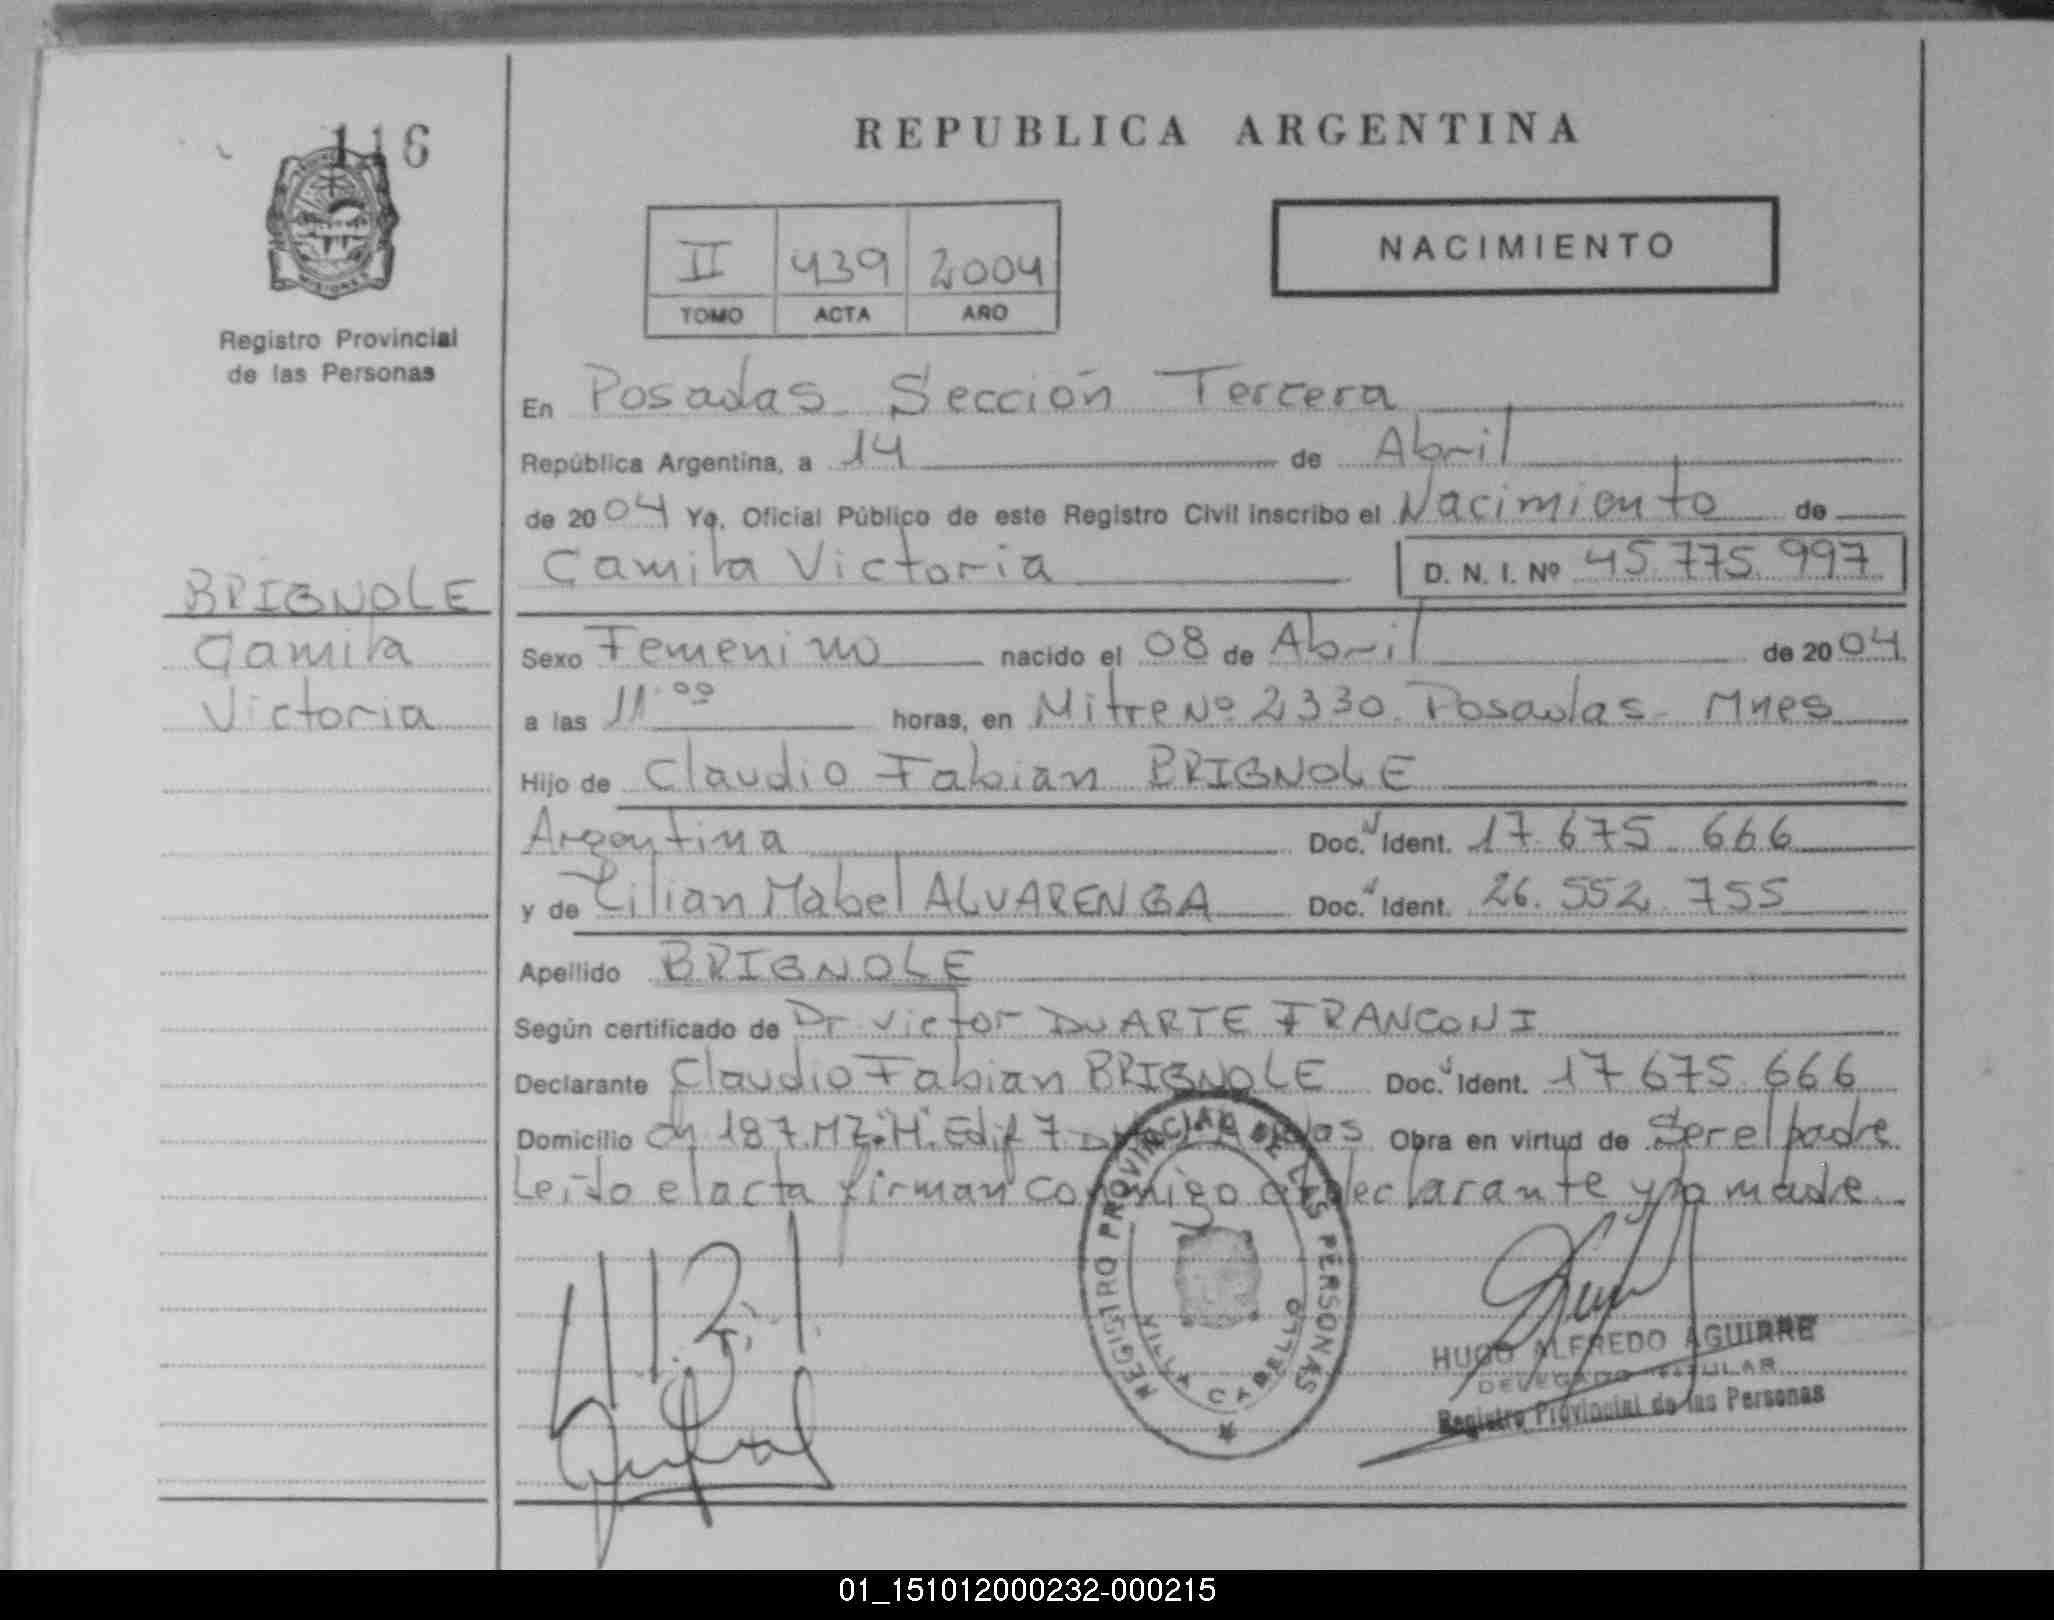 116
REPUBLICA ARGENTINA
NACIMIENTO
II 439 2004
TOMO ACTA AÑO
Registro Provincial
de las Personas
En Posadas Sección Tercera
República Argentina, a 14 de Abril
de 2004 Yo, Oficial Público de este Registro Civil inscribo el Nacimiento de
Camila Victoria D. N. I. Nº 45.775.997
BRIGNOLE
Camila
Victoria
Sexo Femenino nacido el 08 de Abril de 2004
a las 11.00 horas, en Mitre Nº 2330. Posadas - Mnes
Hijo de Claudio Fabian BRIGNOLE
Argentina Doc. Ident. 17.675.666
y de Lilian Mabel ALVARENGA Doc. Ident. 26.552.755
Apellido BRIGNOLE
Según certificado de Dr Victor DUARTE FRANCONI
Declarante Claudio Fabian BRIGNOLE Doc. Ident. 17 675.666
Domicilio Ch 187.MZ."H".Edif 7 Obra en virtud de Ser el padre
Leído el acta firman conmigo el declarante y la madre
REGISTRO PROVINCIAL DE LAS PERSONAS
VILLA CABELLO
HUGO ALFREDO AGUIRRE
DELEGADO TITULAR
Registro Provincial de las Personas
01_151012000232-000215